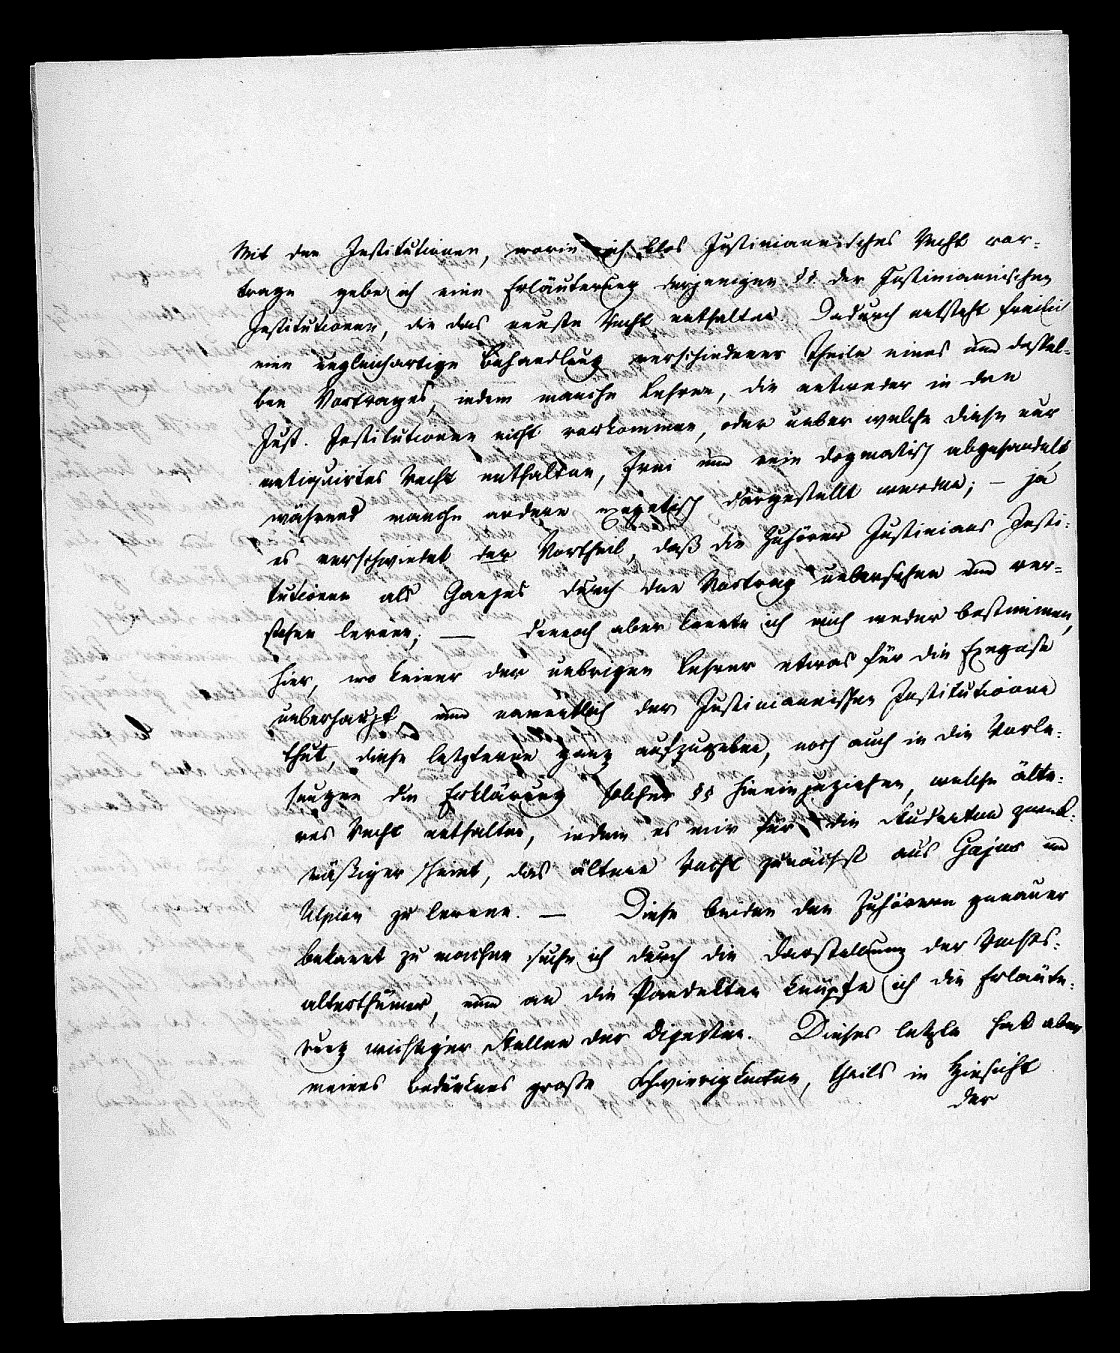 Mit den Institutionen, worin ich blos Justinianeisches Recht vor-
trage gebe ich eine Erläuterung derjenigen §§ der Justinianeischen
Institutionen, die das neuste Recht enthalten. Dadurch entsteht freilich
eine ungleichartige Behandlung verschiedener Theile eines und dessel-
ben Vortrages, indem manche Lehren, die entweder in den
Just. Institutionen nicht vorkommen, oder ueber welche diese nur
antiquirtes Recht enthalten, frei und rein dogmatisch abgehandelt,
während manche andere exegetisch dargestellt werden; – ja
es verschwindet der Vortheil, daß die Zuhörer Justinians Insti-
tutionen als Ganzes durch den Vortrag uebersehen und ver-
stehen lernen; — dennoch aber konnte ich mich weder bestimmen,
hier, wo keiner der uebrigen Lehrer etwas für die Exegese
ueberhaupt und namentlich der Justinianeischen Institutionen
thut, diese letzteren ganz aufzugeben, noch auch in die Vorle-
sungen die Erklärung solcher §§ hineinzuziehen, welche älte-
res Recht enthalten, indem es mir für die Studenten zweck-
mäßiger scheint, das ältere Recht zunächst aus Gajus und
Ulpian zu lernen. — Diese beiden den Zuhörern genauer
bekannt zu machen suche ich durch die Darstellung der Rechts-
alterthümer, und an die Pandekten knüpfe ich die Erläute-
rung wichtiger Stellen der Digesten. Dieses letzte hat aber
meines Bedünkens große Schwierigkeiten, theils in Hinsicht
der